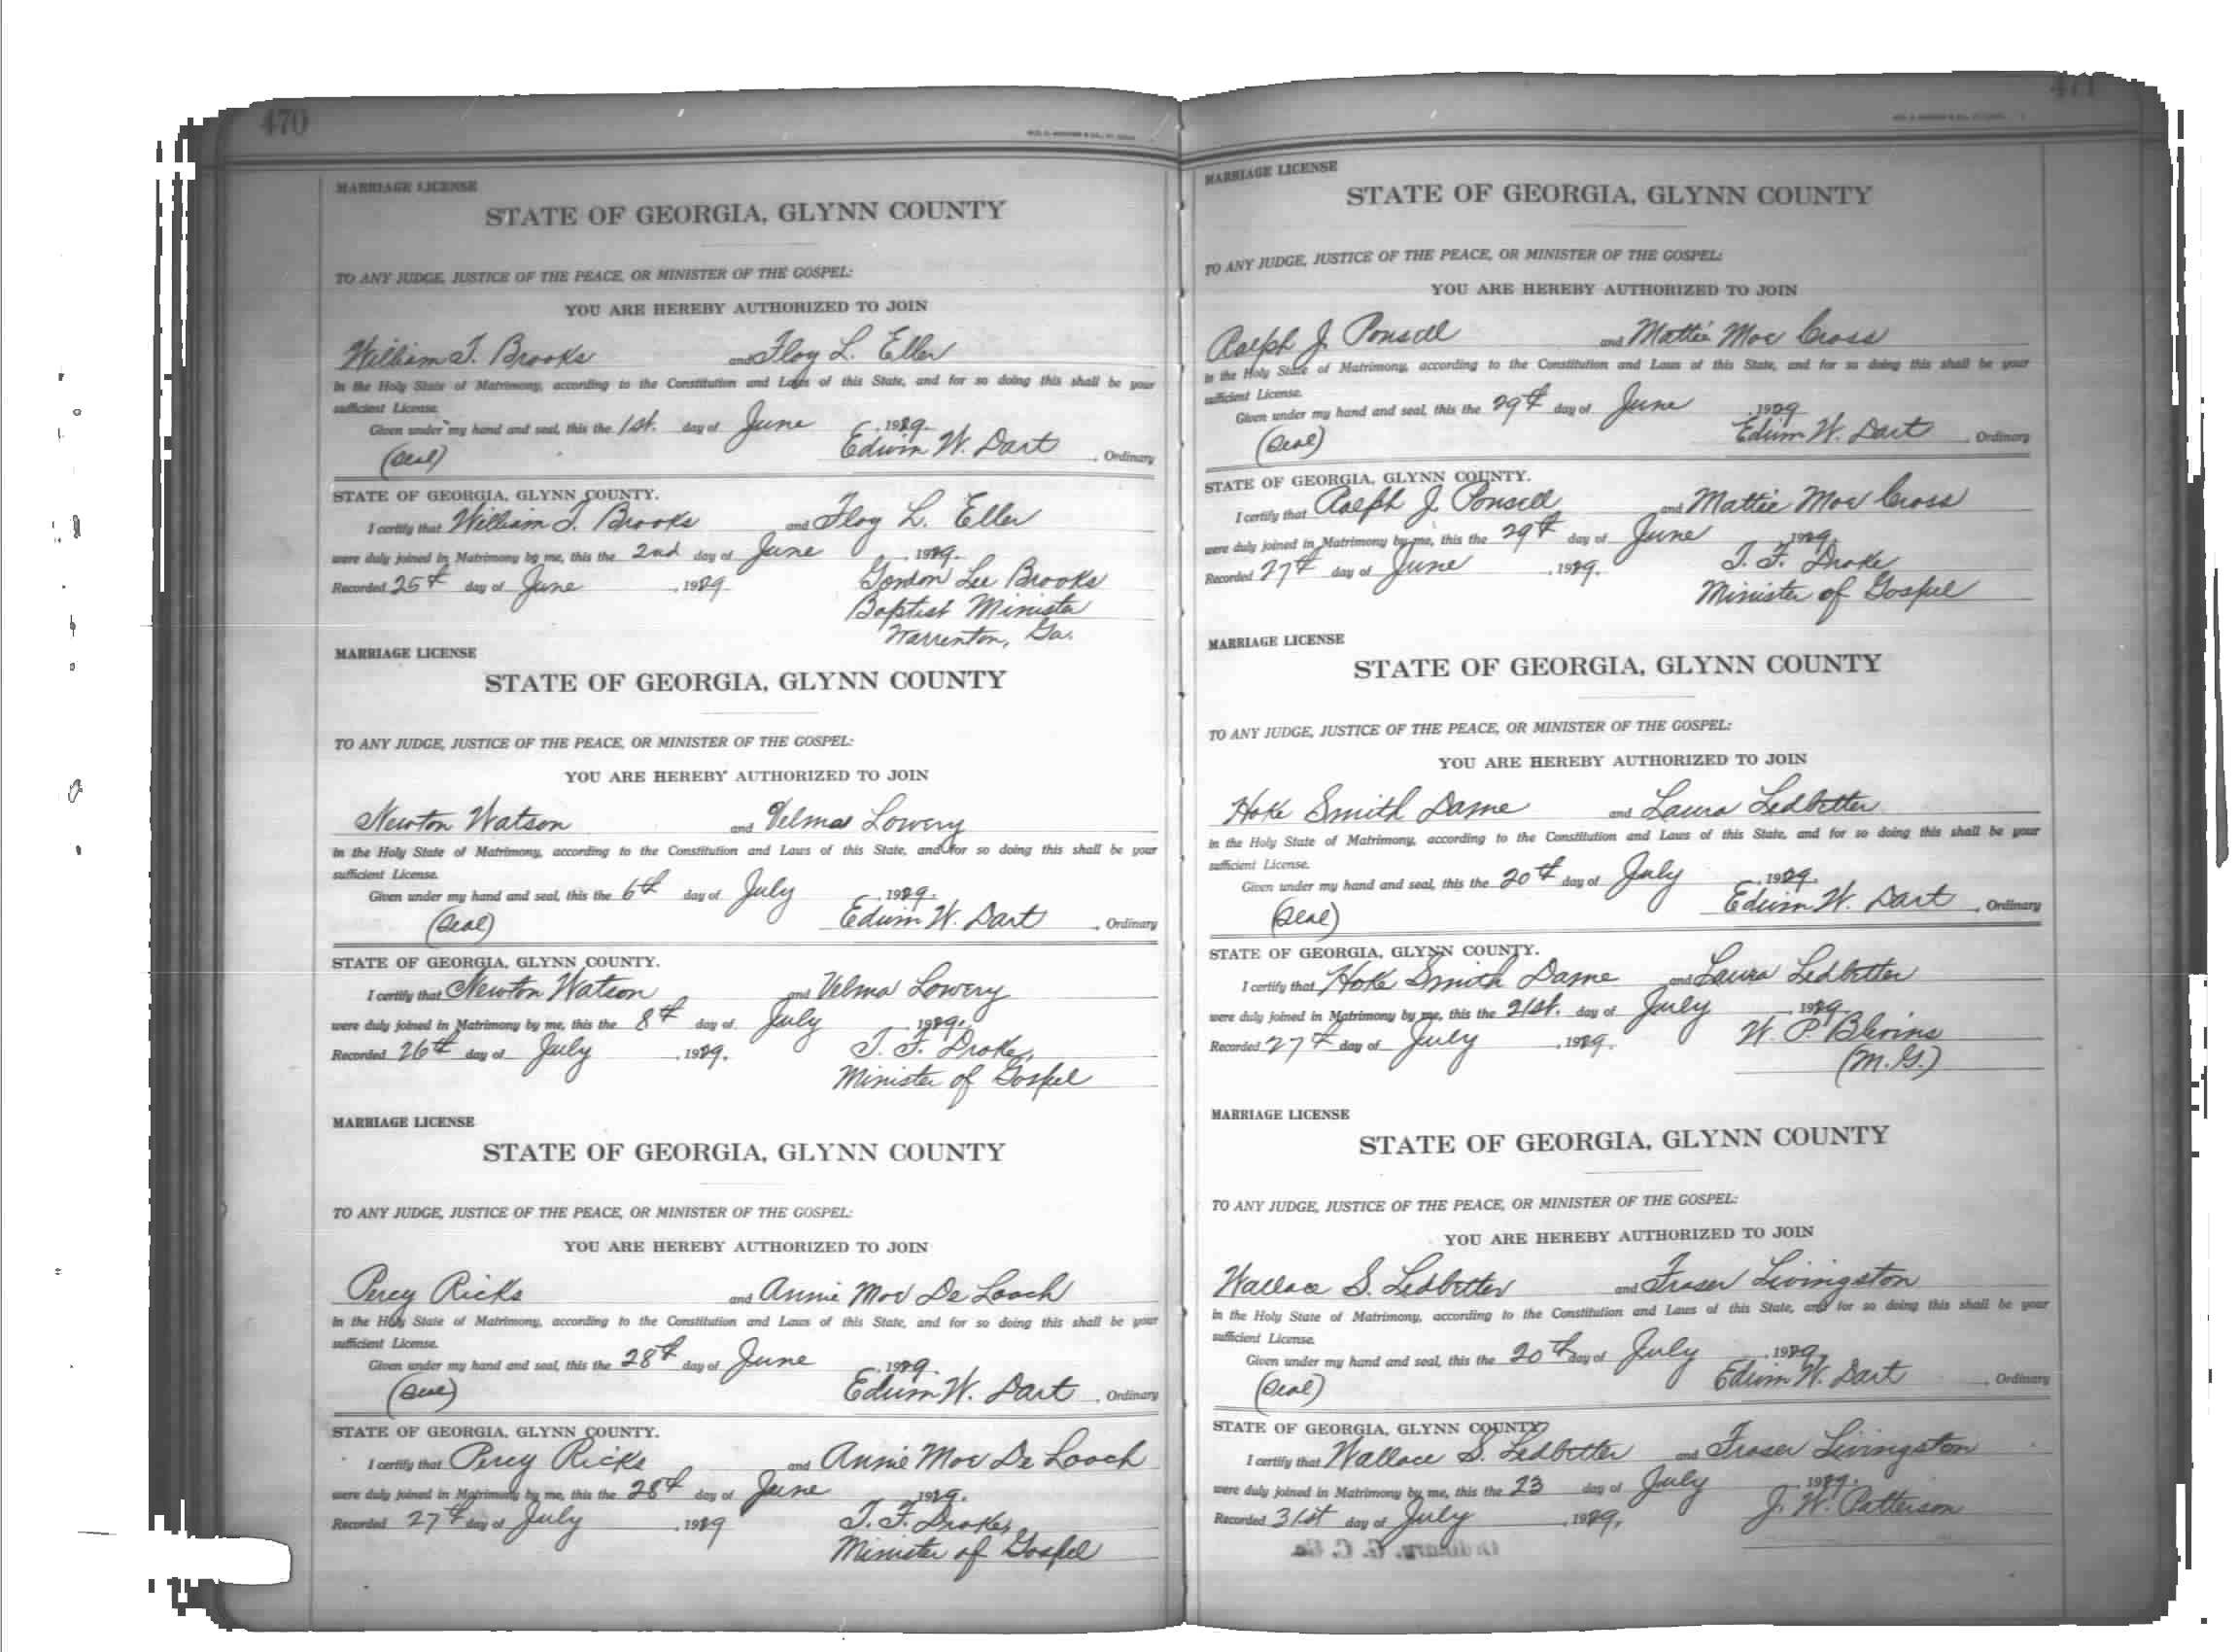 470
MARRIAGE LICENSE
STATE OF GEORGIA, GLYNN COUNTY
TO ANY JUDGE, JUSTICE OF THE PEACE, OR MINISTER OF THE GOSPEL:
YOU ARE HEREBY AUTHORIZED TO JOIN
William T. Brooks and Floy L. Eller
in the Holy State of Matrimony, according to the Constitution and Laws of this State, and for so doing this shall be your
sufficient License.
Given under my hand and seal, this the 1st. day of June, 1929.
(Seal) Edwin W. Dart, Ordinary
STATE OF GEORGIA, GLYNN COUNTY.
I certify that William T. Brooks and Floy L. Eller
were duly joined in Matrimony by me, this the 2nd day of June, 1929.
Recorded 25th day of June, 1929. Gordon Lee Brooks
Baptist Minister
Warrenton, Ga.
MARRIAGE LICENSE
STATE OF GEORGIA, GLYNN COUNTY
TO ANY JUDGE, JUSTICE OF THE PEACE, OR MINISTER OF THE GOSPEL:
YOU ARE HEREBY AUTHORIZED TO JOIN
Newton Watson and Velma Lowery
in the Holy State of Matrimony, according to the Constitution and Laws of this State, and for so doing this shall be your
sufficient License.
Given under my hand and seal, this the 6th day of July, 1929.
(Seal) Edwin W. Dart, Ordinary
STATE OF GEORGIA, GLYNN COUNTY.
I certify that Newton Watson and Velma Lowery
were duly joined in Matrimony by me, this the 8th day of July, 1929.
Recorded 26th day of July, 1929. T. F. Drake,
Minister of Gospel
MARRIAGE LICENSE
STATE OF GEORGIA, GLYNN COUNTY
TO ANY JUDGE, JUSTICE OF THE PEACE, OR MINISTER OF THE GOSPEL:
YOU ARE HEREBY AUTHORIZED TO JOIN
Percy Ricks and Annie Mae De Loach
in the Holy State of Matrimony, according to the Constitution and Laws of this State, and for so doing this shall be your
sufficient License.
Given under my hand and seal, this the 28th day of June, 1929.
(Seal) Edwin W. Dart, Ordinary
STATE OF GEORGIA, GLYNN COUNTY.
I certify that Percy Ricks and Annie Mae De Loach
were duly joined in Matrimony by me, this the 28th day of June 1929.
Recorded 27th day of July, 1929 T. F. Drake,
Minister of Gospel
471
MARRIAGE LICENSE
STATE OF GEORGIA, GLYNN COUNTY
TO ANY JUDGE, JUSTICE OF THE PEACE, OR MINISTER OF THE GOSPEL:
YOU ARE HEREBY AUTHORIZED TO JOIN
Ralph J. Ponsell and Mattie Mae Cross
in the Holy State of Matrimony, according to the Constitution and Laws of this State, and for so doing this shall be your
sufficient License.
Given under my hand and seal, this the 29th day of June, 1929
(Seal) Edwin W. Dart, Ordinary
STATE OF GEORGIA, GLYNN COUNTY.
I certify that Ralph J. Ponsell and Mattie Mae Cross
were duly joined in Matrimony by me, this the 29th day of June, 1929.
Recorded 27th day of June, 1929. T. F. Drake
Minister of Gospel
MARRIAGE LICENSE
STATE OF GEORGIA, GLYNN COUNTY
TO ANY JUDGE, JUSTICE OF THE PEACE, OR MINISTER OF THE GOSPEL:
YOU ARE HEREBY AUTHORIZED TO JOIN
Hoke Smith Dame and Laura Ledbetter
in the Holy State of Matrimony, according to the Constitution and Laws of this State, and for so doing this shall be your
sufficient License.
Given under my hand and seal, this the 20th day of July, 1929.
(Seal) Edwin W. Dart, Ordinary
STATE OF GEORGIA, GLYNN COUNTY.
I certify that Hoke Smith Dame and Laura Ledbetter
were duly joined in Matrimony by me, this the 21st. day of July, 1929.
Recorded 27th day of July, 1929. W. P. Blevins
(M.G.)
MARRIAGE LICENSE
STATE OF GEORGIA, GLYNN COUNTY
TO ANY JUDGE, JUSTICE OF THE PEACE, OR MINISTER OF THE GOSPEL:
YOU ARE HEREBY AUTHORIZED TO JOIN
Wallace S. Ledbetter and Fraser Livingston
in the Holy State of Matrimony, according to the Constitution and Laws of this State, and for so doing this shall be your
sufficient License.
Given under my hand and seal, this the 20th day of July, 1929.
(Seal) Edwin W. Dart, Ordinary
STATE OF GEORGIA, GLYNN COUNTY
I certify that Wallace S. Ledbetter and Fraser Livingston
were duly joined in Matrimony by me, this the 23 day of July, 1929.
Recorded 31st day of July, 1929. J. W. Patterson
Ordinary, G. C. Ga.